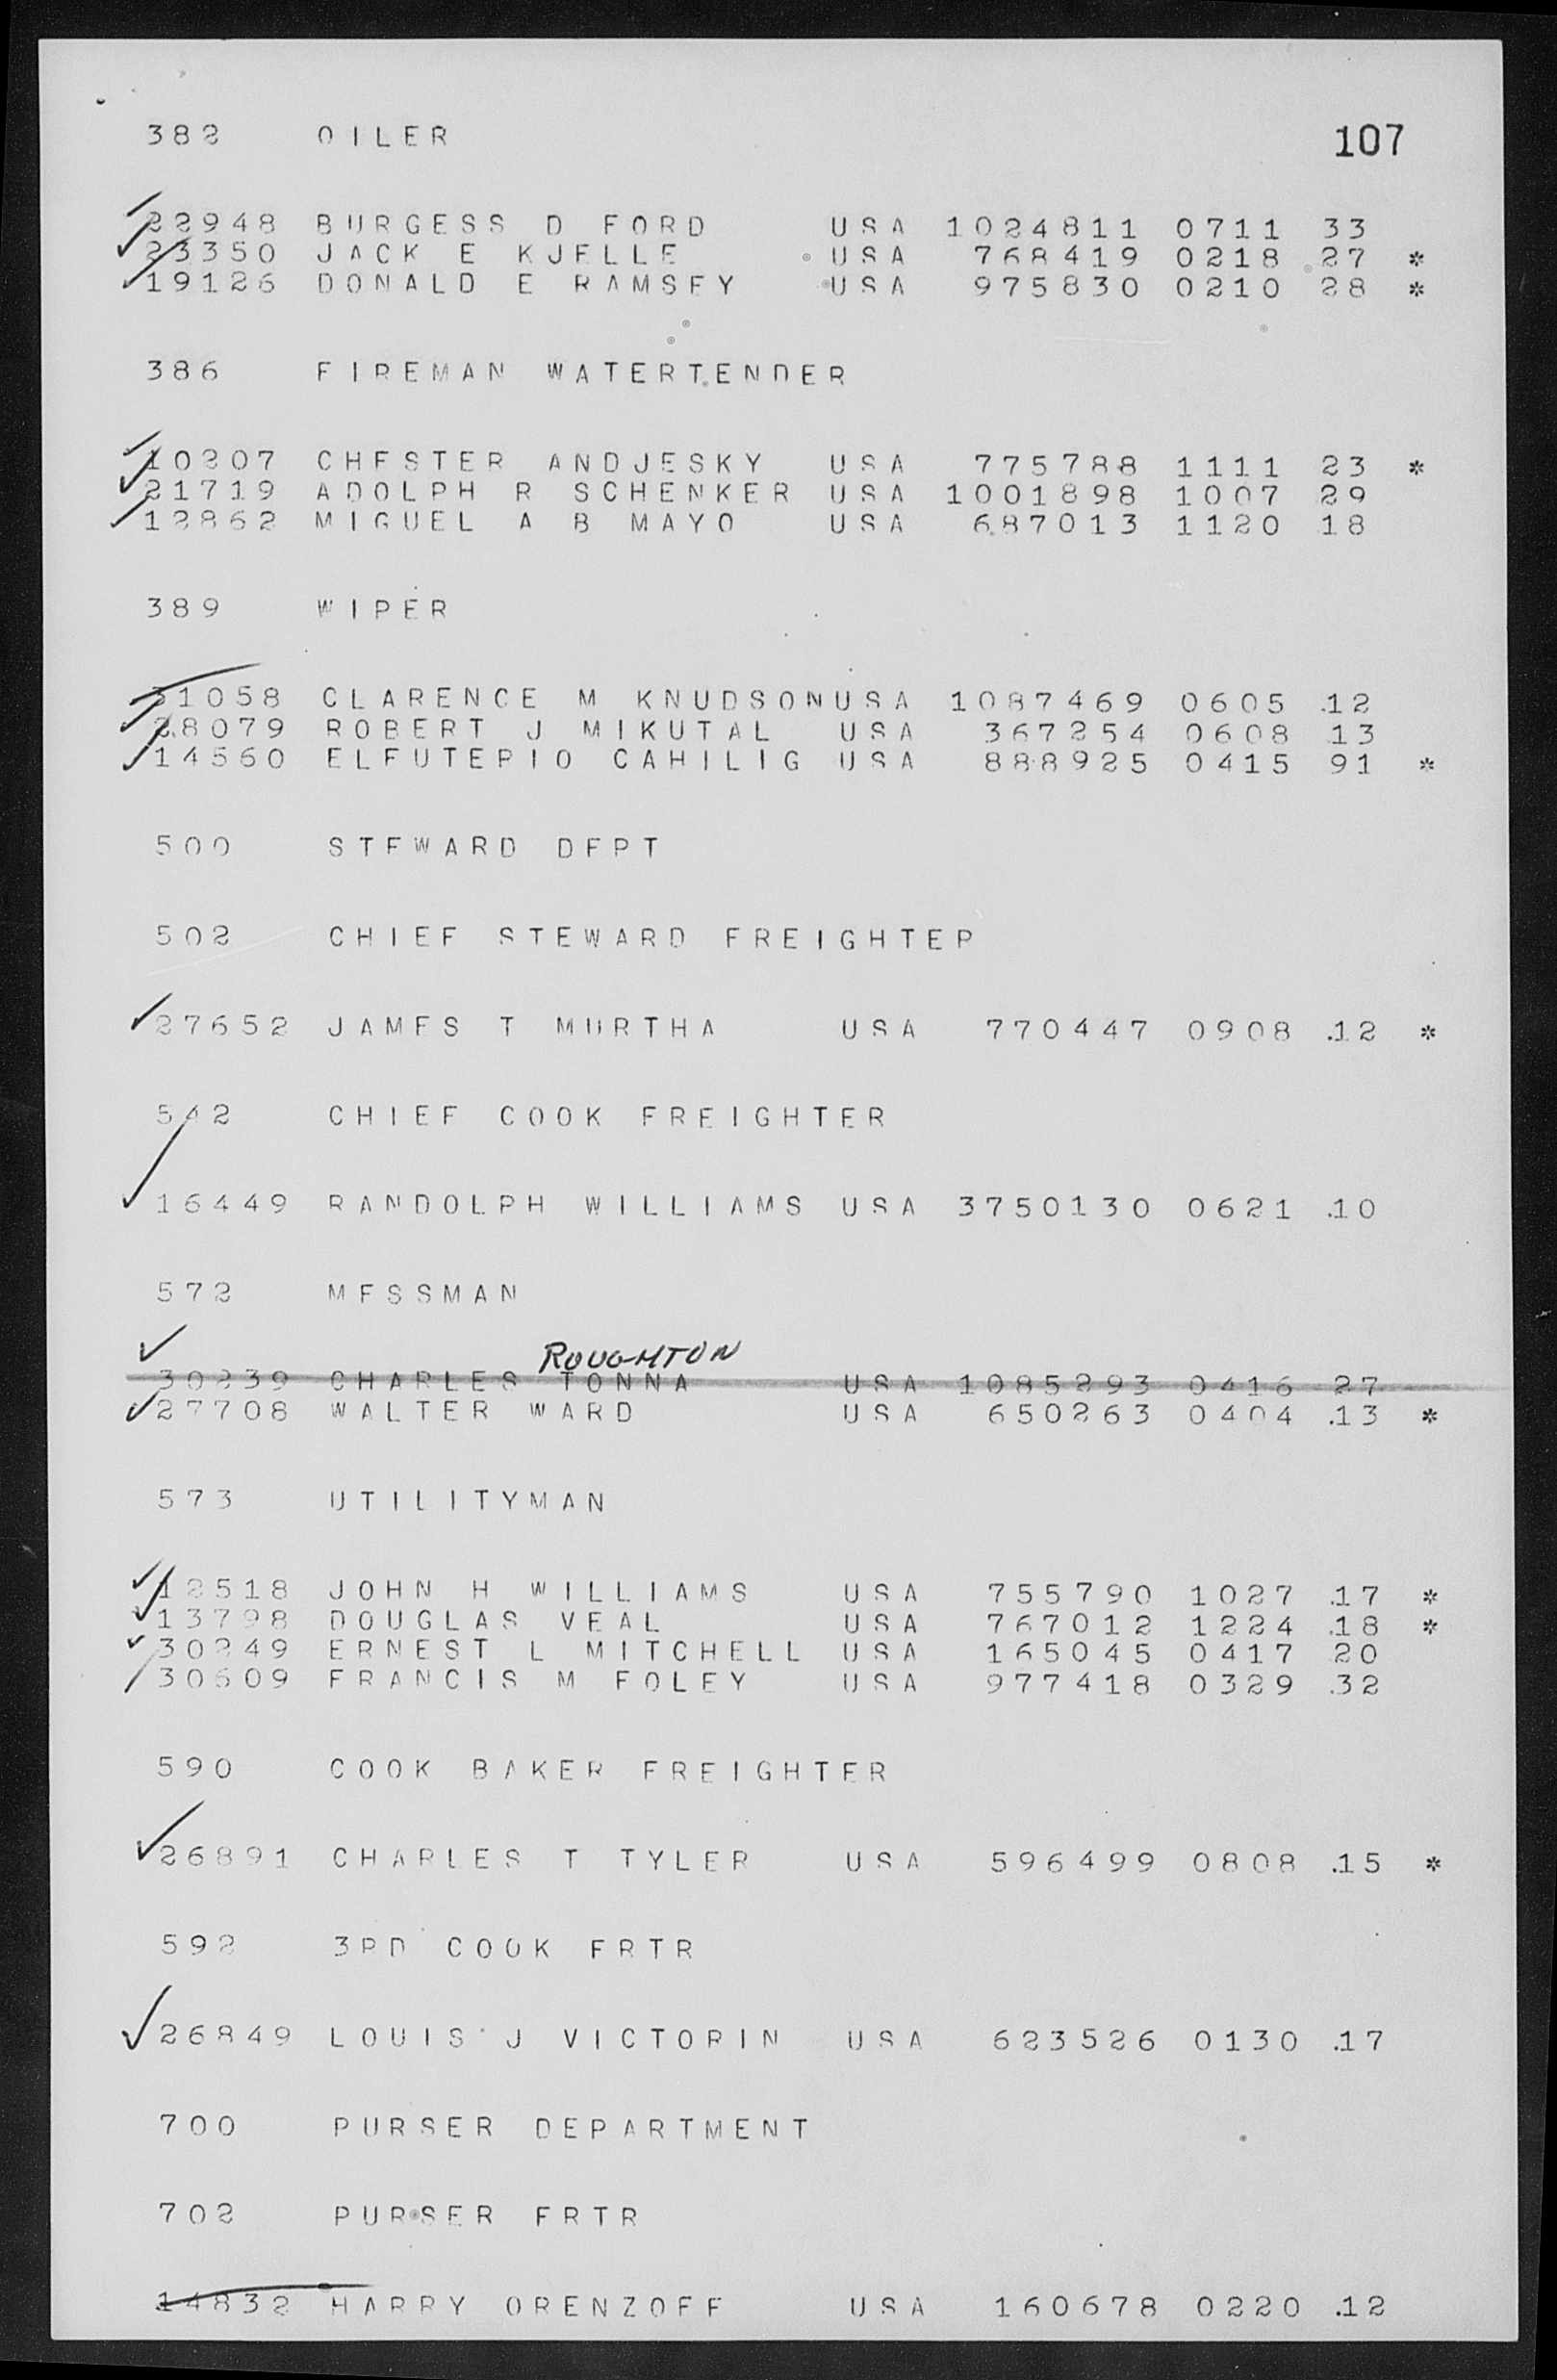 382 OILER 107
22948 BURGESS D FORD USA 1024811 0711 33
23350 JACK E KJELLE USA 768419 0218 27 *
19126 DONALD E RAMSEY USA 975830 0210 28 *
386 FIREMAN WATERTENDER
10207 CHESTER ANDJESKY USA 775788 1111 23 *
21719 ADOLPH R SCHENKER USA 1001898 1007 29
12862 MIGUEL A B MAYO USA 687013 1120 18
389 WIPER
31058 CLARENCE M KNUDSONUSA 1087469 0605 .12
28079 ROBERT J MIKUTAL USA 367254 0608 13
14560 ELFUTERIO CAHILIG USA 888925 0415 91 *
500 STEWARD DEPT
502 CHIEF STEWARD FREIGHTER
27652 JAMES T MURTHA USA 770447 0908 .12 *
542 CHIEF COOK FREIGHTER
16449 RANDOLPH WILLIAMS USA 3750130 0621 .10
572 MESSMAN
ROUGHTON
30239 CHARLES TONNA USA 1085293 0416 27
27708 WALTER WARD USA 650263 0404 .13 *
573 UTILITYMAN
12518 JOHN H WILLIAMS USA 755790 1027 .17 *
13798 DOUGLAS VEAL USA 767012 1224 .18 *
30249 ERNEST L MITCHELL USA 165045 0417 20
30609 FRANCIS M FOLEY USA 977418 0329 .32
590 COOK BAKER FREIGHTER
26891 CHARLES T TYLER USA 596499 0808 .15 *
592 3RD COOK FRTR
26849 LOUIS J VICTORIN USA 623526 0130 .17
700 PURSER DEPARTMENT
702 PURSER FRTR
14832 HARRY ORENZOFF USA 160678 0220 .12